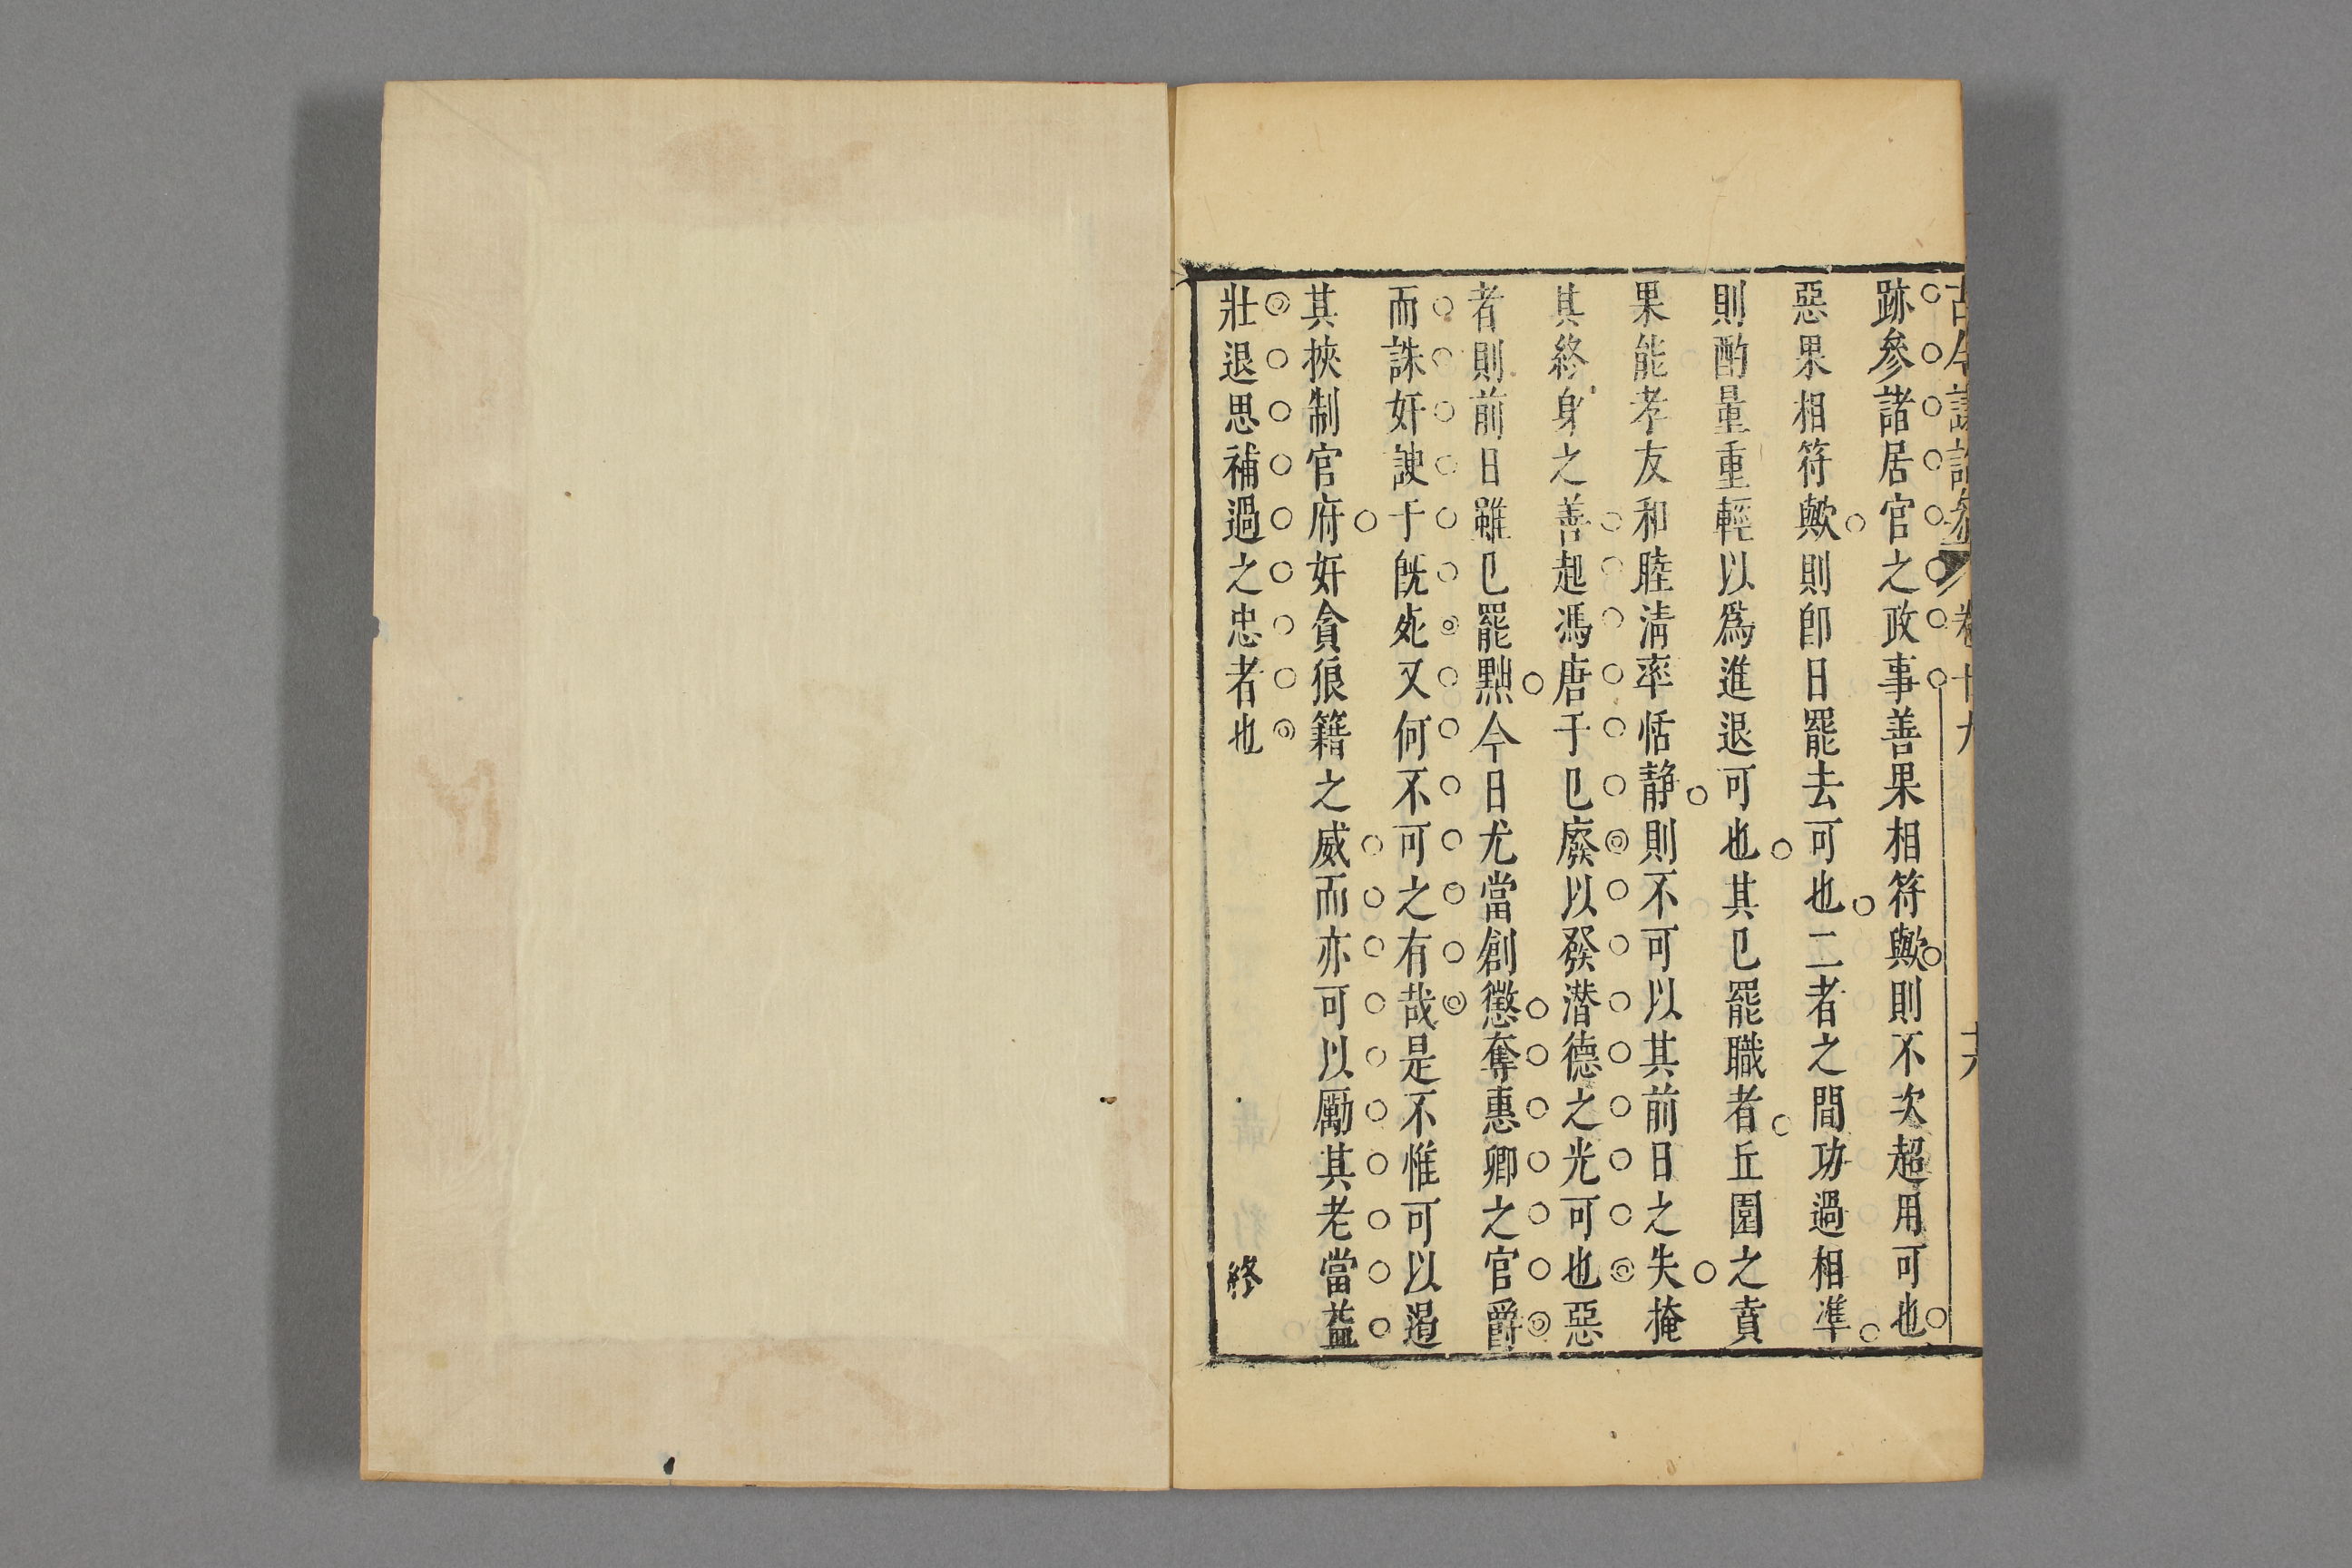 跡參諸居官之政事善果相符歟則不次超用可也
惡果相符歟則卽日罷去可也二者之間功過相準
則酌量重輕以爲進退可也其已罷職者丘園之賁
果能孝友和睦淸率恬靜則不可以其前日之失掩
其終身之善起馮唐于已廢以發潛德之光可也惡
者則前日雖已罷黜今日尤當創懲奪惠卿之官爵
而誅奸諛于旣死又何不可之有哉是不惟可以遏
其挾制官府奸貪狼籍之威而亦可以勵其老當益
壯退思補過之忠者也
終